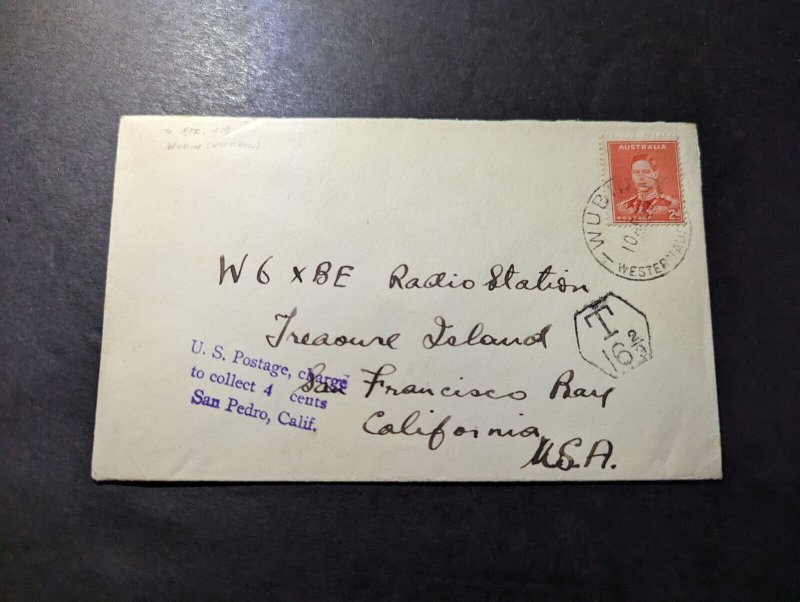 APR.
WUBIN
AUSTRALIA
POSTAGE 2D
WUBIN
10
WESTERN AUS
W6XBE Radio Station
Treasure Island
San Francisco Bay
California
U.S.A.
T
16 2/3
U. S. Postage, charge
to collect 4 cents
San Pedro, Calif.